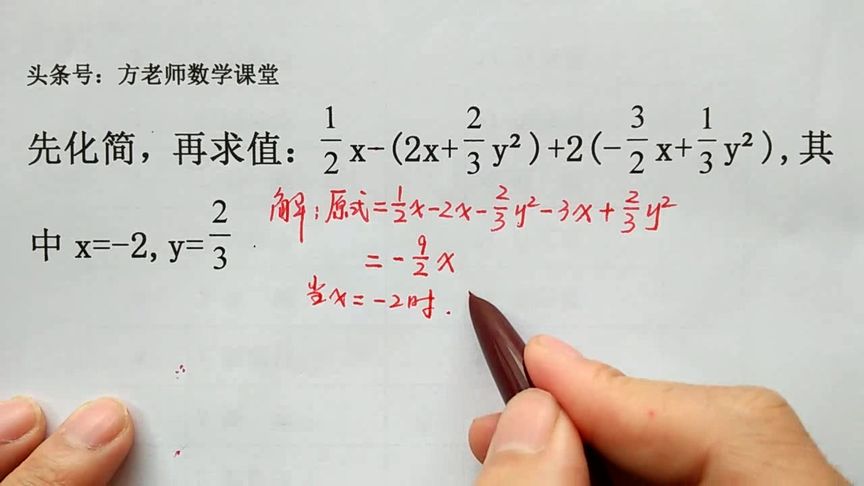 头条号：方老师数学课堂
先化简，再求值：1/2 x-(2x+2/3 y²)+2(-3/2 x+1/3 y²),其
中 x=-2,y=2/3
解：原式=1/2 x-2x-2/3 y²-3x+2/3 y²
=-9/2 x
当x=-2时.